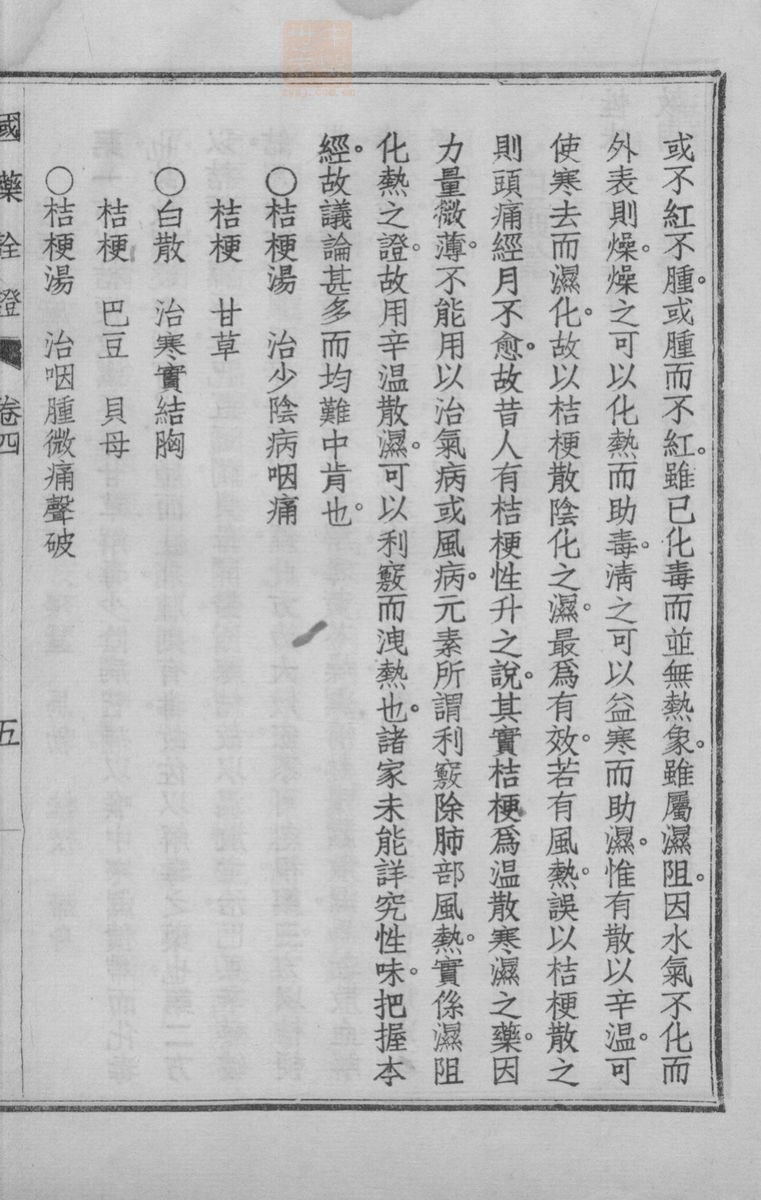 或不紅不腫。或腫而不紅。雖已化毒而並無熱象。雖屬濕阻。因水氣不化而
外表則燥。燥之可以化熱而助毒。清之可以益寒而助濕。惟有散以辛温。可
使寒去而濕化。故以桔梗散陰化之濕。最爲有效。若有風熱。誤以桔梗散之
則頭痛經月不愈。故昔人有桔梗性升之説。其實桔梗爲温散寒濕之藥。因
力量微薄。不能用以治氣病或風病。元素所謂利竅除肺部風熱。實係濕阻
化熱之證。故用辛温散濕。可以利竅而洩熱也。諸家未能詳究性味。把握本
經。故議論甚多而均難中肯也。
○桔梗湯　治少陰病咽痛
桔梗　甘草
○白散　治寒實結胸
桔梗　巴豆　貝母
○桔梗湯　治咽腫微痛聲破
國藥詮證　卷四　五